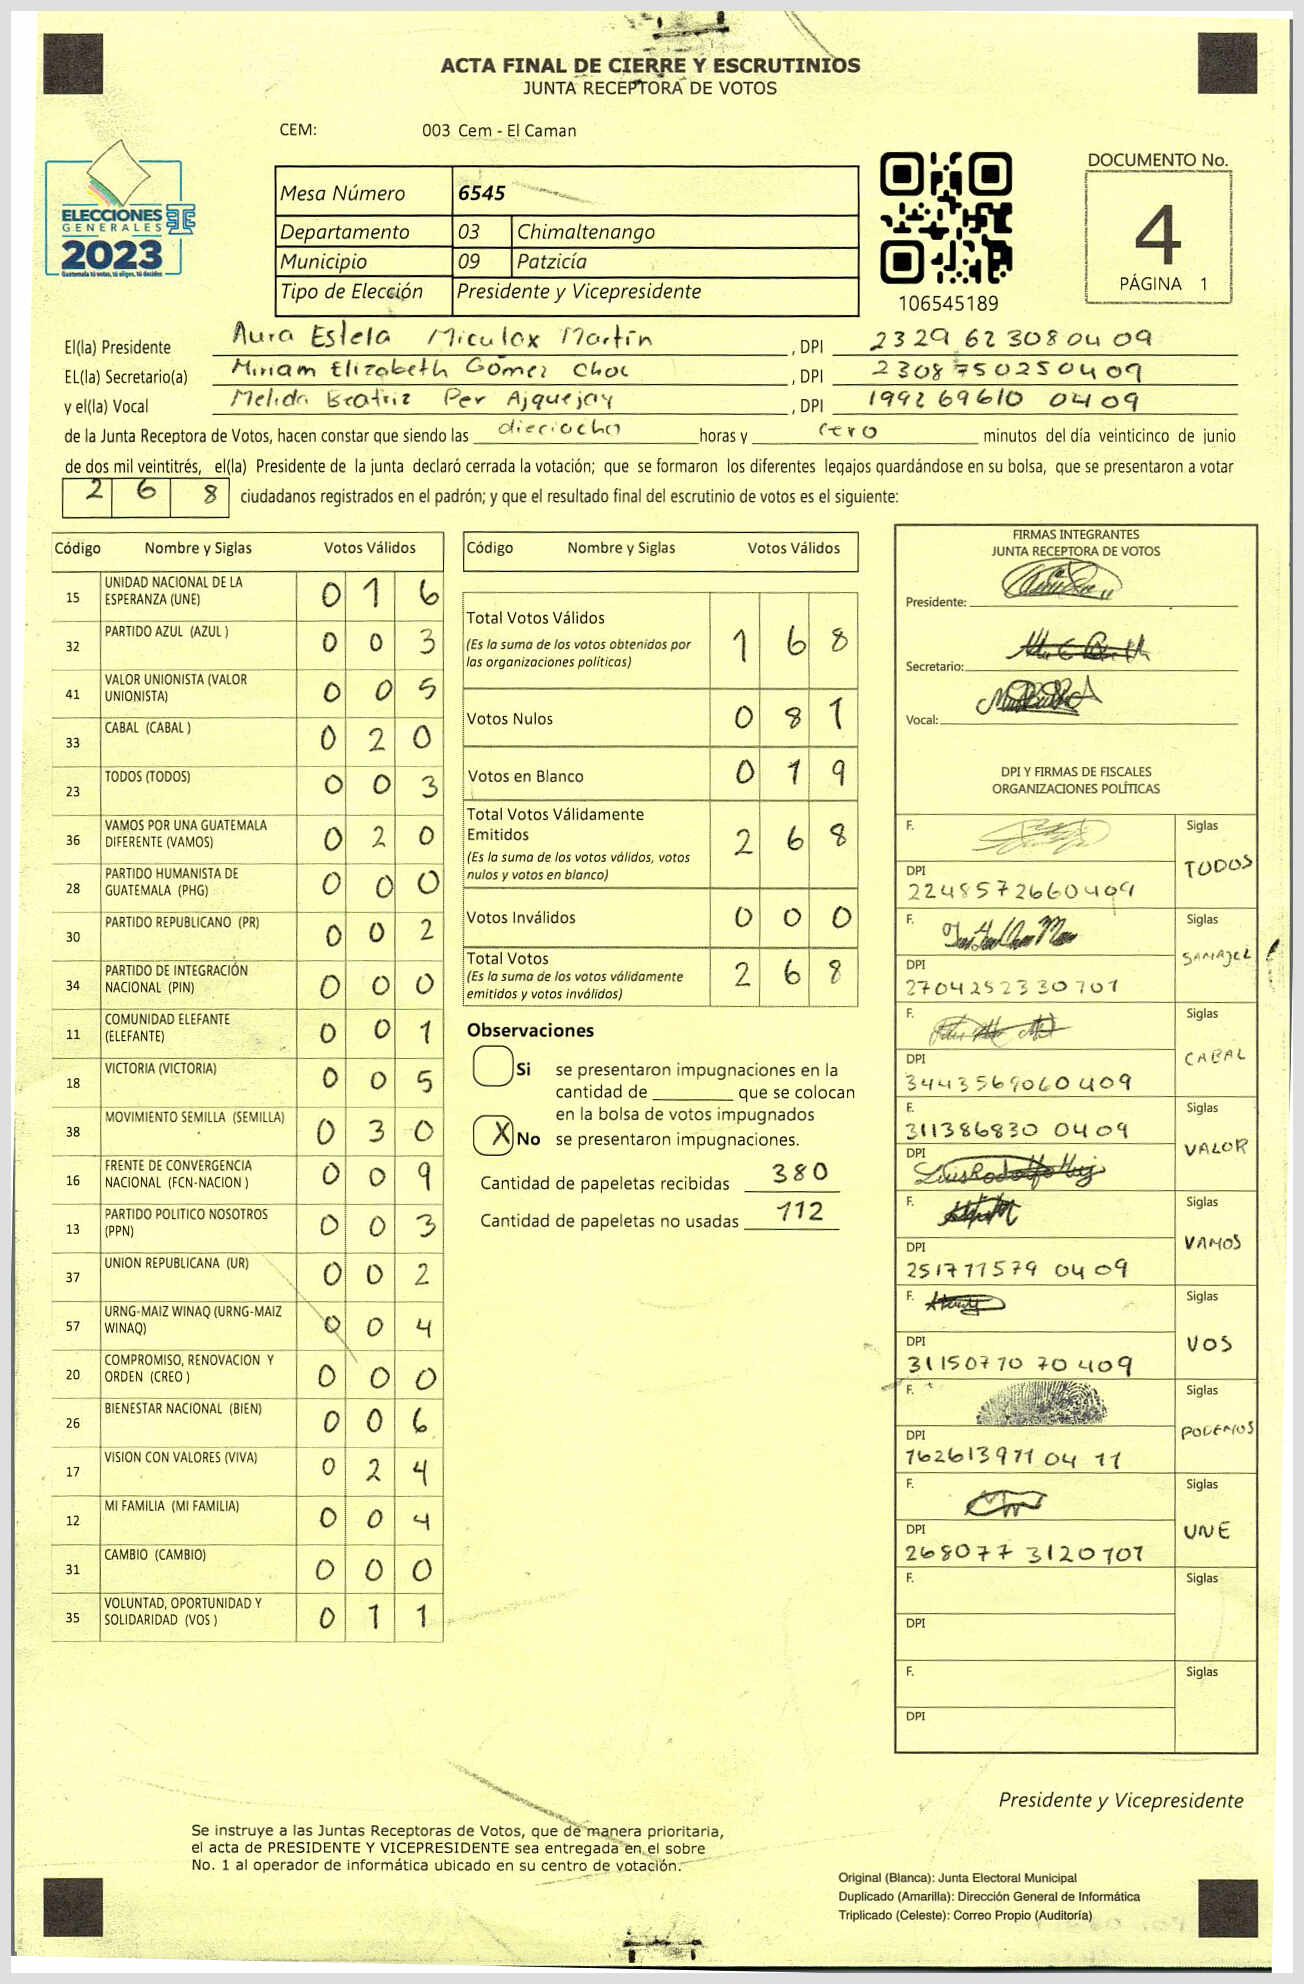 ACTA FINAL DE CIERRE Y ESCRUTINIOS
JUNTA RECEPTORA DE VOTOS
CEM: 003 Cem - El Caman
ELECCIONES
GENERALES
2023
Guatemala tú votas, tú eliges, tú decides
Mesa Número 6545
Departamento 03 Chimaltenango
Municipio 09 Patzicía
Tipo de Elección Presidente y Vicepresidente
106545189
DOCUMENTO No.
4
PÁGINA 1
El(la) Presidente Aura Estela Miculax Martín , DPI 2329 62308 04 09
EL(la) Secretario(a) Miriam Elizabeth Gómez Choc , DPI 2308750250409
y el(la) Vocal Melida Beatriz Per Ajquejay , DPI 199269610 0409
de la Junta Receptora de Votos, hacen constar que siendo las dieciocho horas y cero minutos del día veinticinco de junio
de dos mil veintitrés, el(la) Presidente de la junta declaró cerrada la votación; que se formaron los diferentes legajos quardándose en su bolsa, que se presentaron a votar
2 6 8 ciudadanos registrados en el padrón; y que el resultado final del escrutinio de votos es el siguiente:
Código Nombre y Siglas Votos Válidos
15 UNIDAD NACIONAL DE LA ESPERANZA (UNE) 0 1 6
32 PARTIDO AZUL (AZUL ) 0 0 3
41 VALOR UNIONISTA (VALOR UNIONISTA) 0 0 5
33 CABAL (CABAL ) 0 2 0
23 TODOS (TODOS) 0 0 3
36 VAMOS POR UNA GUATEMALA DIFERENTE (VAMOS) 0 2 0
28 PARTIDO HUMANISTA DE GUATEMALA (PHG) 0 0 0
30 PARTIDO REPUBLICANO (PR) 0 0 2
34 PARTIDO DE INTEGRACIÓN NACIONAL (PIN) 0 0 0
11 COMUNIDAD ELEFANTE (ELEFANTE) 0 0 1
18 VICTORIA (VICTORIA) 0 0 5
38 MOVIMIENTO SEMILLA (SEMILLA) 0 3 0
16 FRENTE DE CONVERGENCIA NACIONAL (FCN-NACION ) 0 0 9
13 PARTIDO POLITICO NOSOTROS (PPN) 0 0 3
37 UNION REPUBLICANA (UR) 0 0 2
57 URNG-MAIZ WINAQ (URNG-MAIZ WINAQ) 0 0 4
20 COMPROMISO, RENOVACION Y ORDEN (CREO ) 0 0 0
26 BIENESTAR NACIONAL (BIEN) 0 0 6
17 VISION CON VALORES (VIVA) 0 2 4
12 MI FAMILIA (MI FAMILIA) 0 0 4
31 CAMBIO (CAMBIO) 0 0 0
35 VOLUNTAD, OPORTUNIDAD Y SOLIDARIDAD (VOS ) 0 1 1
Código Nombre y Siglas Votos Válidos
Total Votos Válidos 1 6 8
(Es la suma de los votos obtenidos por
las organizaciones políticas)
Votos Nulos 0 8 1
Votos en Blanco 0 1 9
Total Votos Válidamente
Emitidos 2 6 8
(Es la suma de los votos válidos, votos
nulos y votos en blanco)
Votos Inválidos 0 0 0
Total Votos 2 6 8
(Es la suma de los votos válidamente
emitidos y votos inválidos)
Observaciones
Si se presentaron impugnaciones en la
cantidad de ________ que se colocan
en la bolsa de votos impugnados
X No se presentaron impugnaciones.
Cantidad de papeletas recibidas 380
Cantidad de papeletas no usadas 112
FIRMAS INTEGRANTES
JUNTA RECEPTORA DE VOTOS
Presidente:
Secretario:
Vocal:
DPI Y FIRMAS DE FISCALES
ORGANIZACIONES POLÍTICAS
F. Siglas
TODOS
DPI
2248572660409
F. Siglas
SAMAJEL
DPI
2704252330701
F. Siglas
CABAL
DPI
3443569060409
F. Siglas
311386830 0409
VALOR
DPI
F. Siglas
VAMOS
DPI
251771579 0409
F. Siglas
VOS
DPI
31150770 70409
F. Siglas
PODEMOS
DPI
162613971 04 11
F. Siglas
UNE
DPI
268077 3120101
F. Siglas
DPI
F. Siglas
DPI
Presidente y Vicepresidente
Se instruye a las Juntas Receptoras de Votos, que de manera prioritaria,
el acta de PRESIDENTE Y VICEPRESIDENTE sea entregada en el sobre
No. 1 al operador de informática ubicado en su centro de votación.
Original (Blanca): Junta Electoral Municipal
Duplicado (Amarilla): Dirección General de Informática
Triplicado (Celeste): Correo Propio (Auditoría)